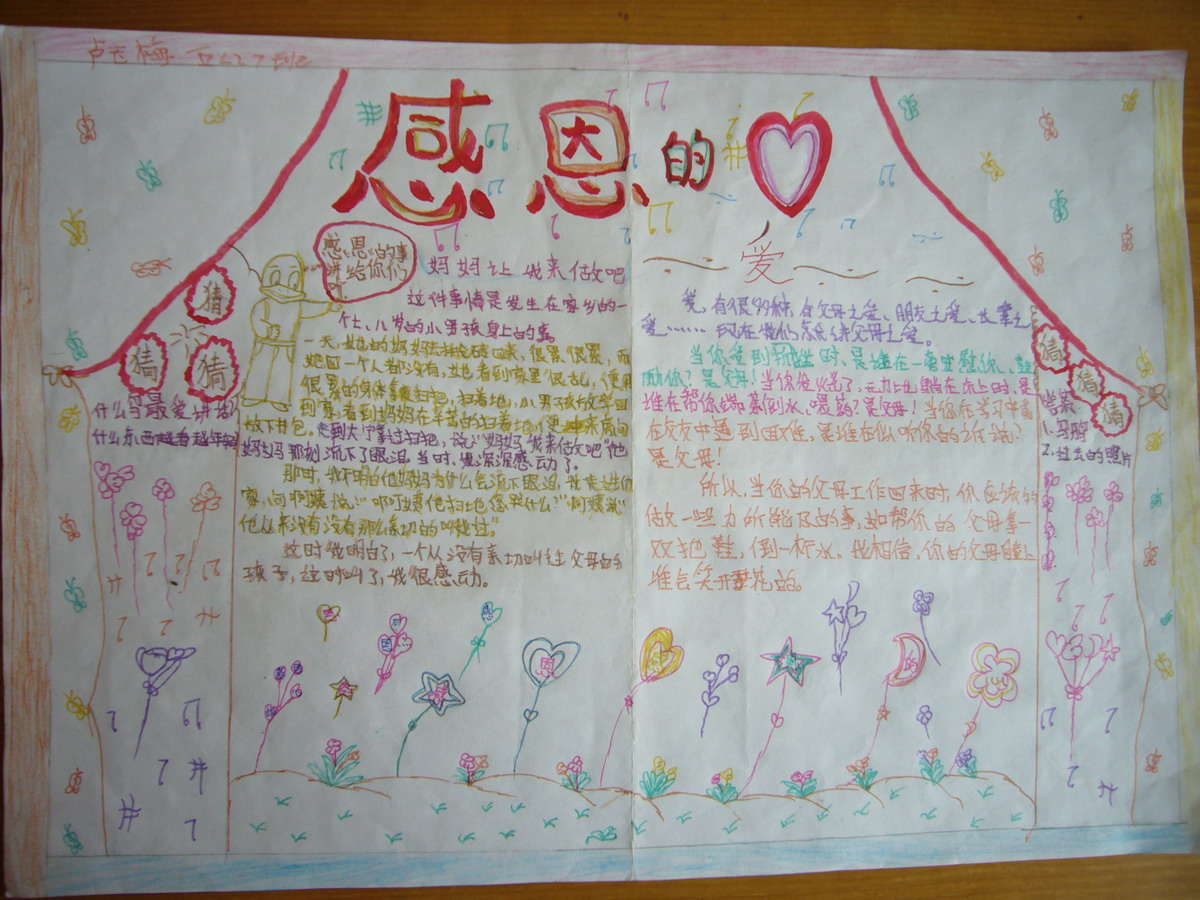 卢云梅
感恩的
猜
猜
猜
什么马最爱讲话
什么东西越看越年轻
感恩的事
讲给你们
妈妈让我来做吧
这件事情是发生在家乡的一
个七、八岁的小男孩身上的事。
一天,她的妈妈去挑砖回来,很累,很累,而
她回一个人都没有,她看到家里很乱,便用
很累的身体拿扫把,扫着地,小男孩放学回
到家,看到妈妈在辛苦的扫着地,便冲来屋间
放下书包。走到大宁拿过扫把,说:“妈妈我来做吧”他
妈妈那刻流下了眼泪。当时,她深深感动了。
那时,我不明白他妈妈为什么会流下眼泪。我走进他
家,问阿姨说:“叮叮婆他扫地您哭什么?”阿姨说:“
他从来没有没有那么亲切的叫过。”
这时我明白了,一个从没有亲切叫过父母的
孩子,这时叫了,我很感动。
爱
爱,有很多种,有父母之爱、朋友之爱、长辈之
爱……现在我们就来讲父母之爱。
当你受到挫时,是谁在一旁安慰你、鼓
励你?是父母!当你发烧了,无力地躺在床上时,是
谁在帮你端茶倒水、喂药?是父母!当你在学习中或
在交友中遇到困难,是谁在倾听你的诉说?
是父母!
所以,当你的父母工作回来时,你应该的
做一些力所能及的事,如帮你的父母拿一
双拖鞋,倒一杯水。我相信,你的父母脸上
准会笑开花的。
猜
猜
猜
答案:
1.马骑
2.过去的照片